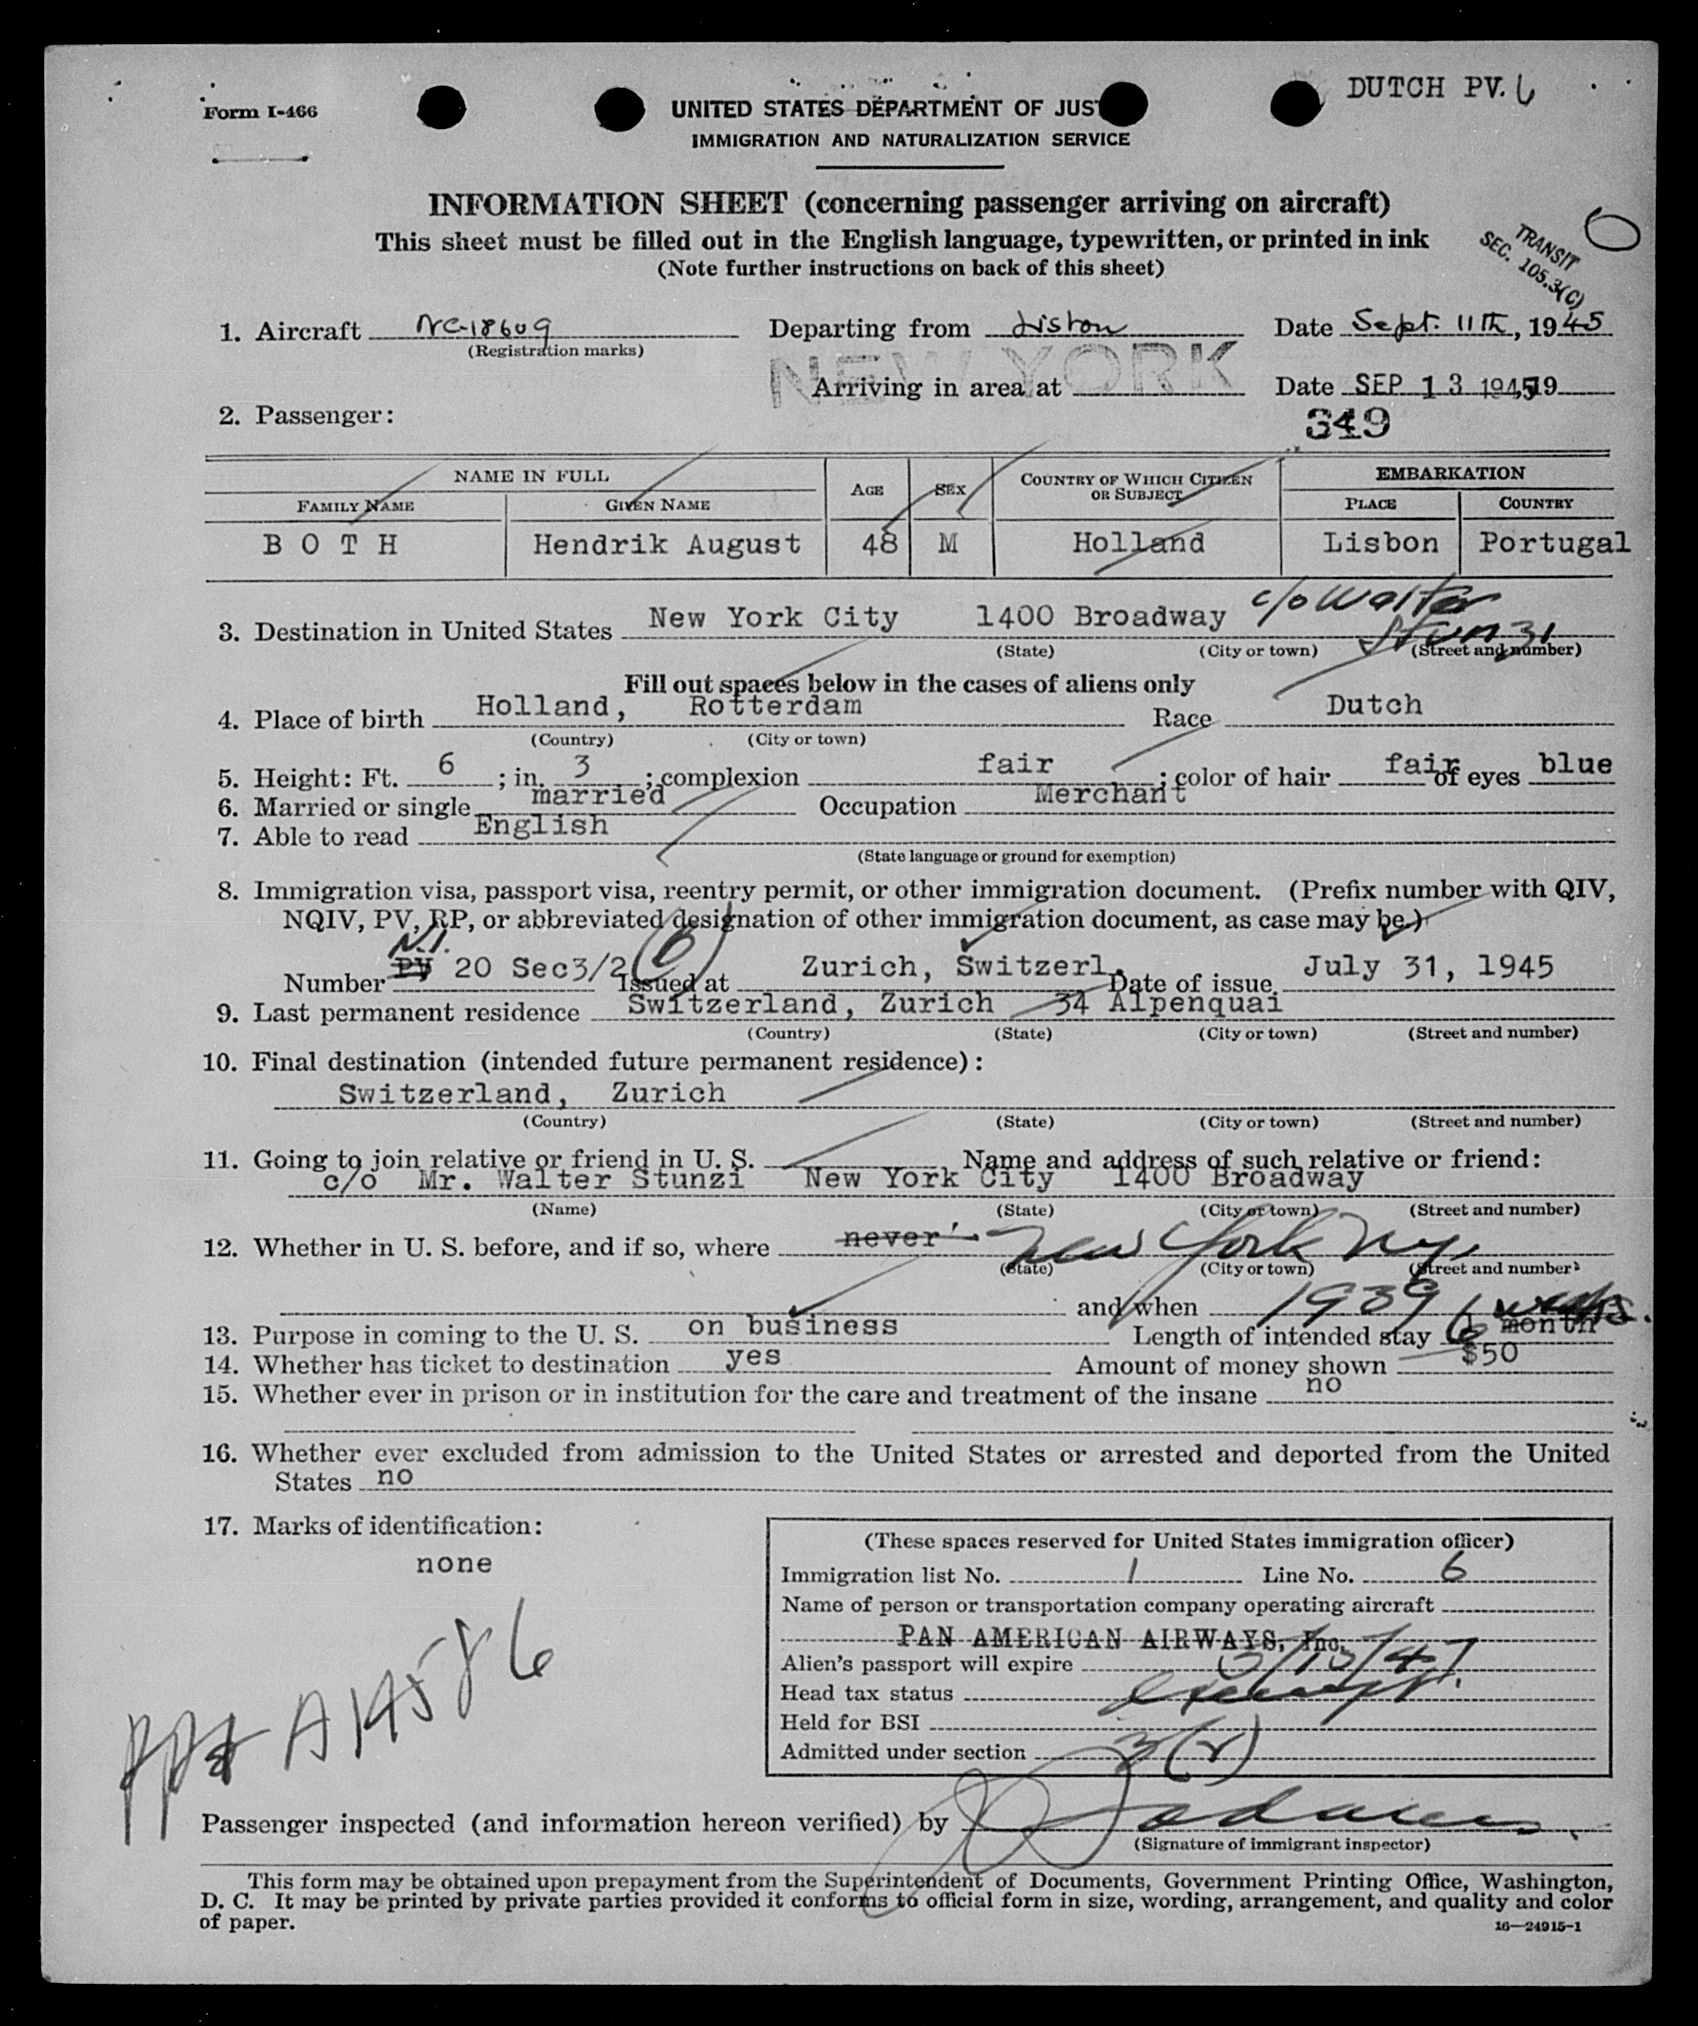 DUTCH PV. 6
Form I-466
UNITED STATES DEPARTMENT OF JUST
IMMIGRATION AND NATURALIZATION SERVICE
INFORMATION SHEET (concerning passenger arriving on aircraft)
This sheet must be filled out in the English language, typewritten, or printed in ink
(Note further instructions on back of this sheet)
TRANSIT
SEC. 105.3(C)
1. Aircraft NC-18609 Departing from Lisbon Date Sept. 11th, 1945
(Registration marks)
NEW YORK
Arriving in area at Date SEP 13 1945, 19
2. Passenger:
349
NAME IN FULL AGE SEX COUNTRY OF WHICH CITIZEN OR SUBJECT EMBARKATION
FAMILY NAME GIVEN NAME PLACE COUNTRY
B O T H Hendrik August 48 M Holland Lisbon Portugal
3. Destination in United States New York City 1400 Broadway c/o Walter Stunzi
(State) (City or town) (Street and number)
Fill out spaces below in the cases of aliens only
4. Place of birth Holland, Rotterdam Race Dutch
(Country) (City or town)
5. Height: Ft. 6; in. 3; complexion fair; color of hair fair of eyes blue
6. Married or single married Occupation Merchant
7. Able to read English
(State language or ground for exemption)
8. Immigration visa, passport visa, reentry permit, or other immigration document. (Prefix number with QIV,
NQIV, PV, RP, or abbreviated designation of other immigration document, as case may be.)
N.I.
Number PV 20 Sec3/2 (6) Issued at Zurich, Switzerl. Date of issue July 31, 1945
9. Last permanent residence Switzerland, Zurich 34 Alpenquai
(Country) (State) (City or town) (Street and number)
10. Final destination (intended future permanent residence):
Switzerland, Zurich
(Country) (State) (City or town) (Street and number)
11. Going to join relative or friend in U. S. Name and address of such relative or friend:
c/o Mr. Walter Stunzi New York City 1400 Broadway
(Name) (State) (City or town) (Street and number)
12. Whether in U. S. before, and if so, where never New York Ny.
(State) (City or town) (Street and number)
and when 1939 6 weeks.
13. Purpose in coming to the U. S. on business Length of intended stay month
14. Whether has ticket to destination yes Amount of money shown $50
15. Whether ever in prison or in institution for the care and treatment of the insane no
16. Whether ever excluded from admission to the United States or arrested and deported from the United
States no
17. Marks of identification:
none
PPt A14586
(These spaces reserved for United States immigration officer)
Immigration list No. 1 Line No. 6
Name of person or transportation company operating aircraft
PAN AMERICAN AIRWAYS, Inc.
Alien's passport will expire 3/13/47
Head tax status exempt.
Held for BSI
Admitted under section 3(2)
Passenger inspected (and information hereon verified) by
(Signature of immigrant inspector)
This form may be obtained upon prepayment from the Superintendent of Documents, Government Printing Office, Washington,
D. C. It may be printed by private parties provided it conforms to official form in size, wording, arrangement, and quality and color
of paper.
16—24915-1